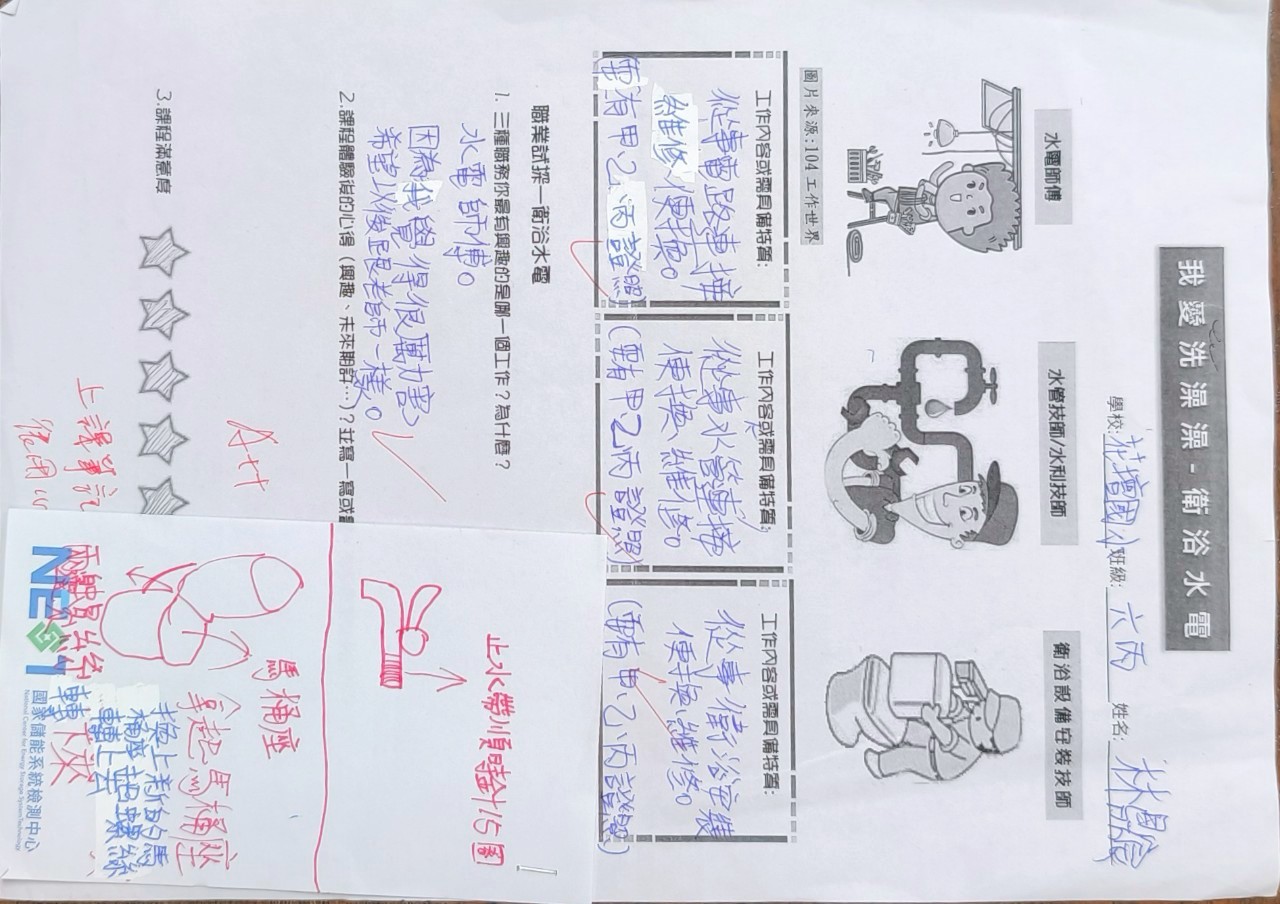 我愛洗澡澡-衛浴水電
學校:花壇國小 班級:六丙 姓名:林
水電師傅
水管技師/水利技師
衛浴設備安裝技師
圖片來源:104工作世界
工作內容或需具備特質:
從事電路連接
維修、便換。
需有甲乙丙證照
工作內容或需具備特質:
從事水管連接
便換、維修。
(需有甲乙丙證照)
工作內容或需具備特質:
從事衛浴安裝
便換、維修。
(需有甲乙丙證照)
職業試探—衛浴水電
1. 三種職務你最有興趣的是哪一個工作？為什麼？
水電師傅。
因為我覺得很厲害
希望以後跟老師一樣。
2.課程體驗後的心得（興趣、未來期許…)？並寫一寫或
3.課程滿意度
A++
上課筆記
很用心
止水帶順時針15圈
馬桶座
拿起馬桶座
兩顆螺絲
轉下來
換上新的馬
桶座把螺絲
轉上去
國家儲能系統檢測中心
National Center for Energy Storage System Technology